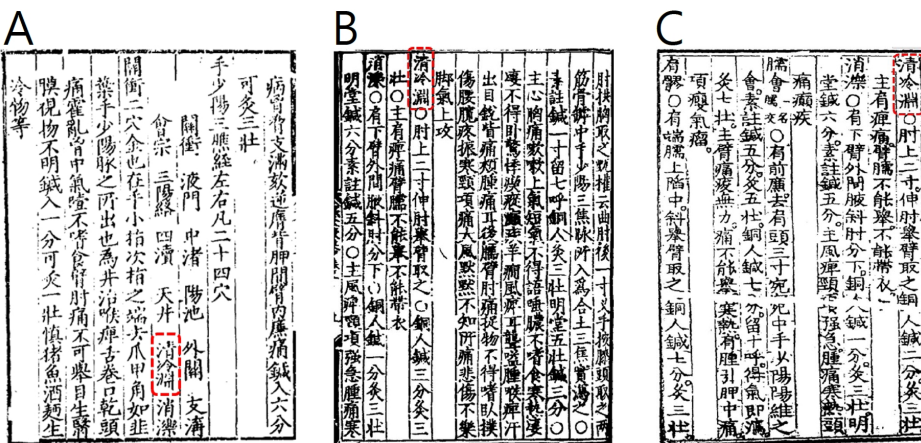 A
病胷脅支滿欬逆肩背胛間臂内廉痛鍼入六分
可灸三壯
手少陽三膲經左右凡二十四穴
關衝 液門 中渚 陽池 外關 支溝
會宗 三陽絡 四瀆 天井 清冷淵 消濼
關衝二穴金也在手小指次指之端去爪甲角如韭
葉手少陽脉之所出也爲井治喉痺舌卷口乾頭
痛霍亂胷中氣噎不嗜食臂肘痛不可舉目生瞖
膜視物不明鍼入一分可灸一壯慎猪魚酒麵生
冷物等
B
肘拱胸取之甄權云曲肘後一寸叉手按膝頭取之兩
筋骨罅中手少陽三焦脉所入爲合土三焦實瀉之○
素註鍼一寸留七呼銅人灸三壯明堂五壯鍼三分○
主心胸痛欬嗽上氣短氣不得語唾膿不嗜食寒熱凄
凄不得卧驚悸瘈瘲癲疾羊癇風痺耳聾嗌腫喉痺汗
出目銳眥痛頰腫痛耳後臑臂肘痛捉物不得嗜卧撲
傷腰髖疼振寒頸項痛大風默默不知所痛悲傷不樂
脚氣上攻
清冷淵○肘上二寸伸肘舉臂取之○銅人鍼三分灸三
壯○主肩痺痛臂臑不能舉不能帶衣
消濼○肩下臂外間腋斜肘分下○銅人鍼一分灸三壯
明堂鍼六分素註鍼五分○主風痺頸項強急腫痛寒
C
清冷淵○肘上二寸伸肘舉臂取之 銅人鍼二分灸三壯
主肩痺痛臂臑不能舉不能帶衣
消濼○肩下臂外間腋斜肘分下銅人鍼一分灸三壯明
堂鍼六分素註鍼五分主風痺頸項強急腫痛寒熱頭
痛癲疾
臑會一名臑交○肩前廉去肩頭三寸宛宛中手少陽陽維之
會素註鍼五分灸五壯銅人鍼七分留十呼得氣即瀉
灸七壯主臂痛痠無力痛不能舉寒熱肩腫引胛中痛
項癭氣瘤
肩髎○肩端臑上陷中斜舉臂取之 銅人鍼七分灸三壯